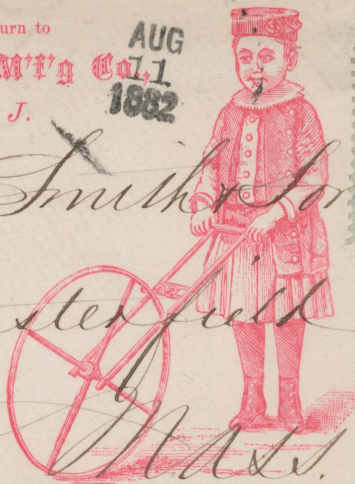 urn to
M'f'g Co.,
J.
AUG
11
1882
Smith & Son
sterfield
Mass.